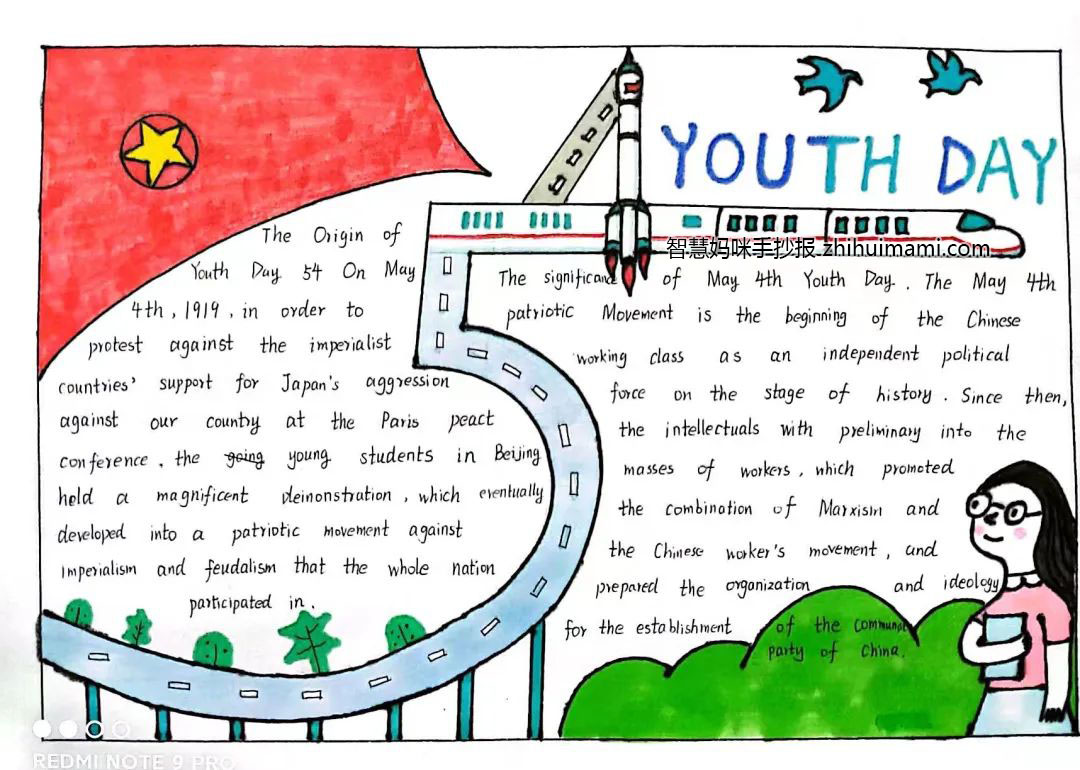 YOUTH DAY
智慧妈咪手抄报 zhihuimami.com
The Origin of
Youth Day 54 On May
4th, 1919, in order to
protest against the imperialist
countries' support for Japan's aggression
against our country at the Paris peact
conference, the going young students in Beijing
held a magnificent deinonstration, which eventually
developed into a patriotic movement against
Imperialism and feudalism that the whole nation
participated in.
The significane of May 4th Youth Day. The May 4th
patriotic Movement is the beginning of the Chinese
working class as an independent political
force on the stage of history. Since then,
the intellectuals with preliminary into the
masses of workers, which promoted
the combination of Marxism and
the Chinese worker's movement, and
prepared the organization and ideology
for the establishment of the communist
party of China.
REDMI NOTE 9 PRO